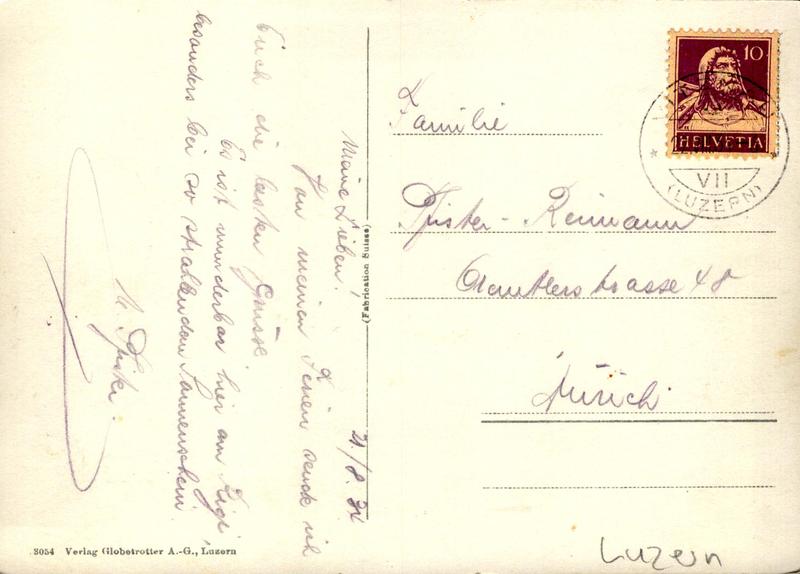 21./8. 34
Meine Lieben!
Von meinen Ferien sende ich
Euch die besten Grüsse.
Es ist wunderbar hier am Rigi
besonders bei so strahlendem Sonnenschein.
(Fabrication Suisse)
3054 Verlag Globetrotter A.-G., Luzern
10
HELVETIA
VII
(LUZERN)
Familie
Pfister - Reimann
strasse 48
Zürich
Luzern